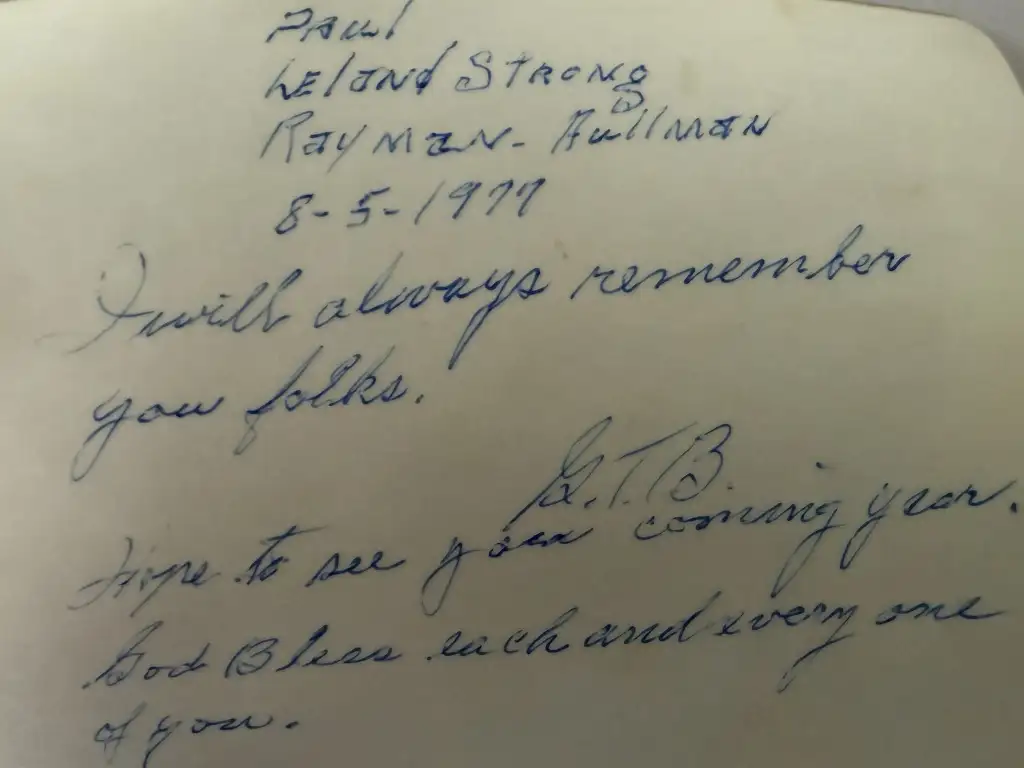 Paul
Leland Strong
Rayman - Aullman
8-5-1977
I will always remember
you folks.
G.T.B.
Hope to see you coming year.
God Bless each and every one
of you.